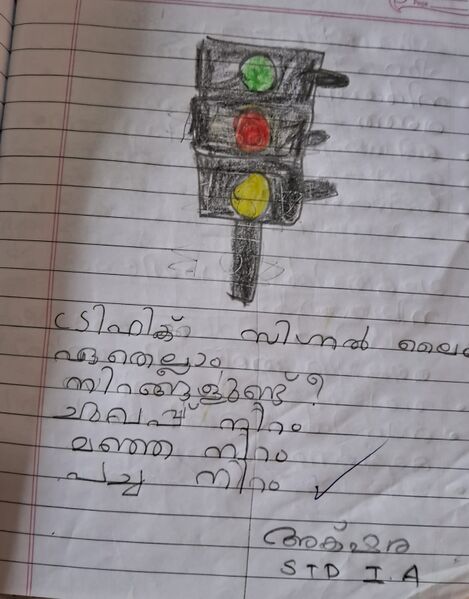 ട്രാഫിക് സിഗ്നൽ ലൈ
ഏതെല്ലാം
നിറങ്ങളുണ്ട് ?
ചുവപ്പ് നിറം
മഞ്ഞ നിറം
പച്ച നിറം
അക്ഷര
STD I.A